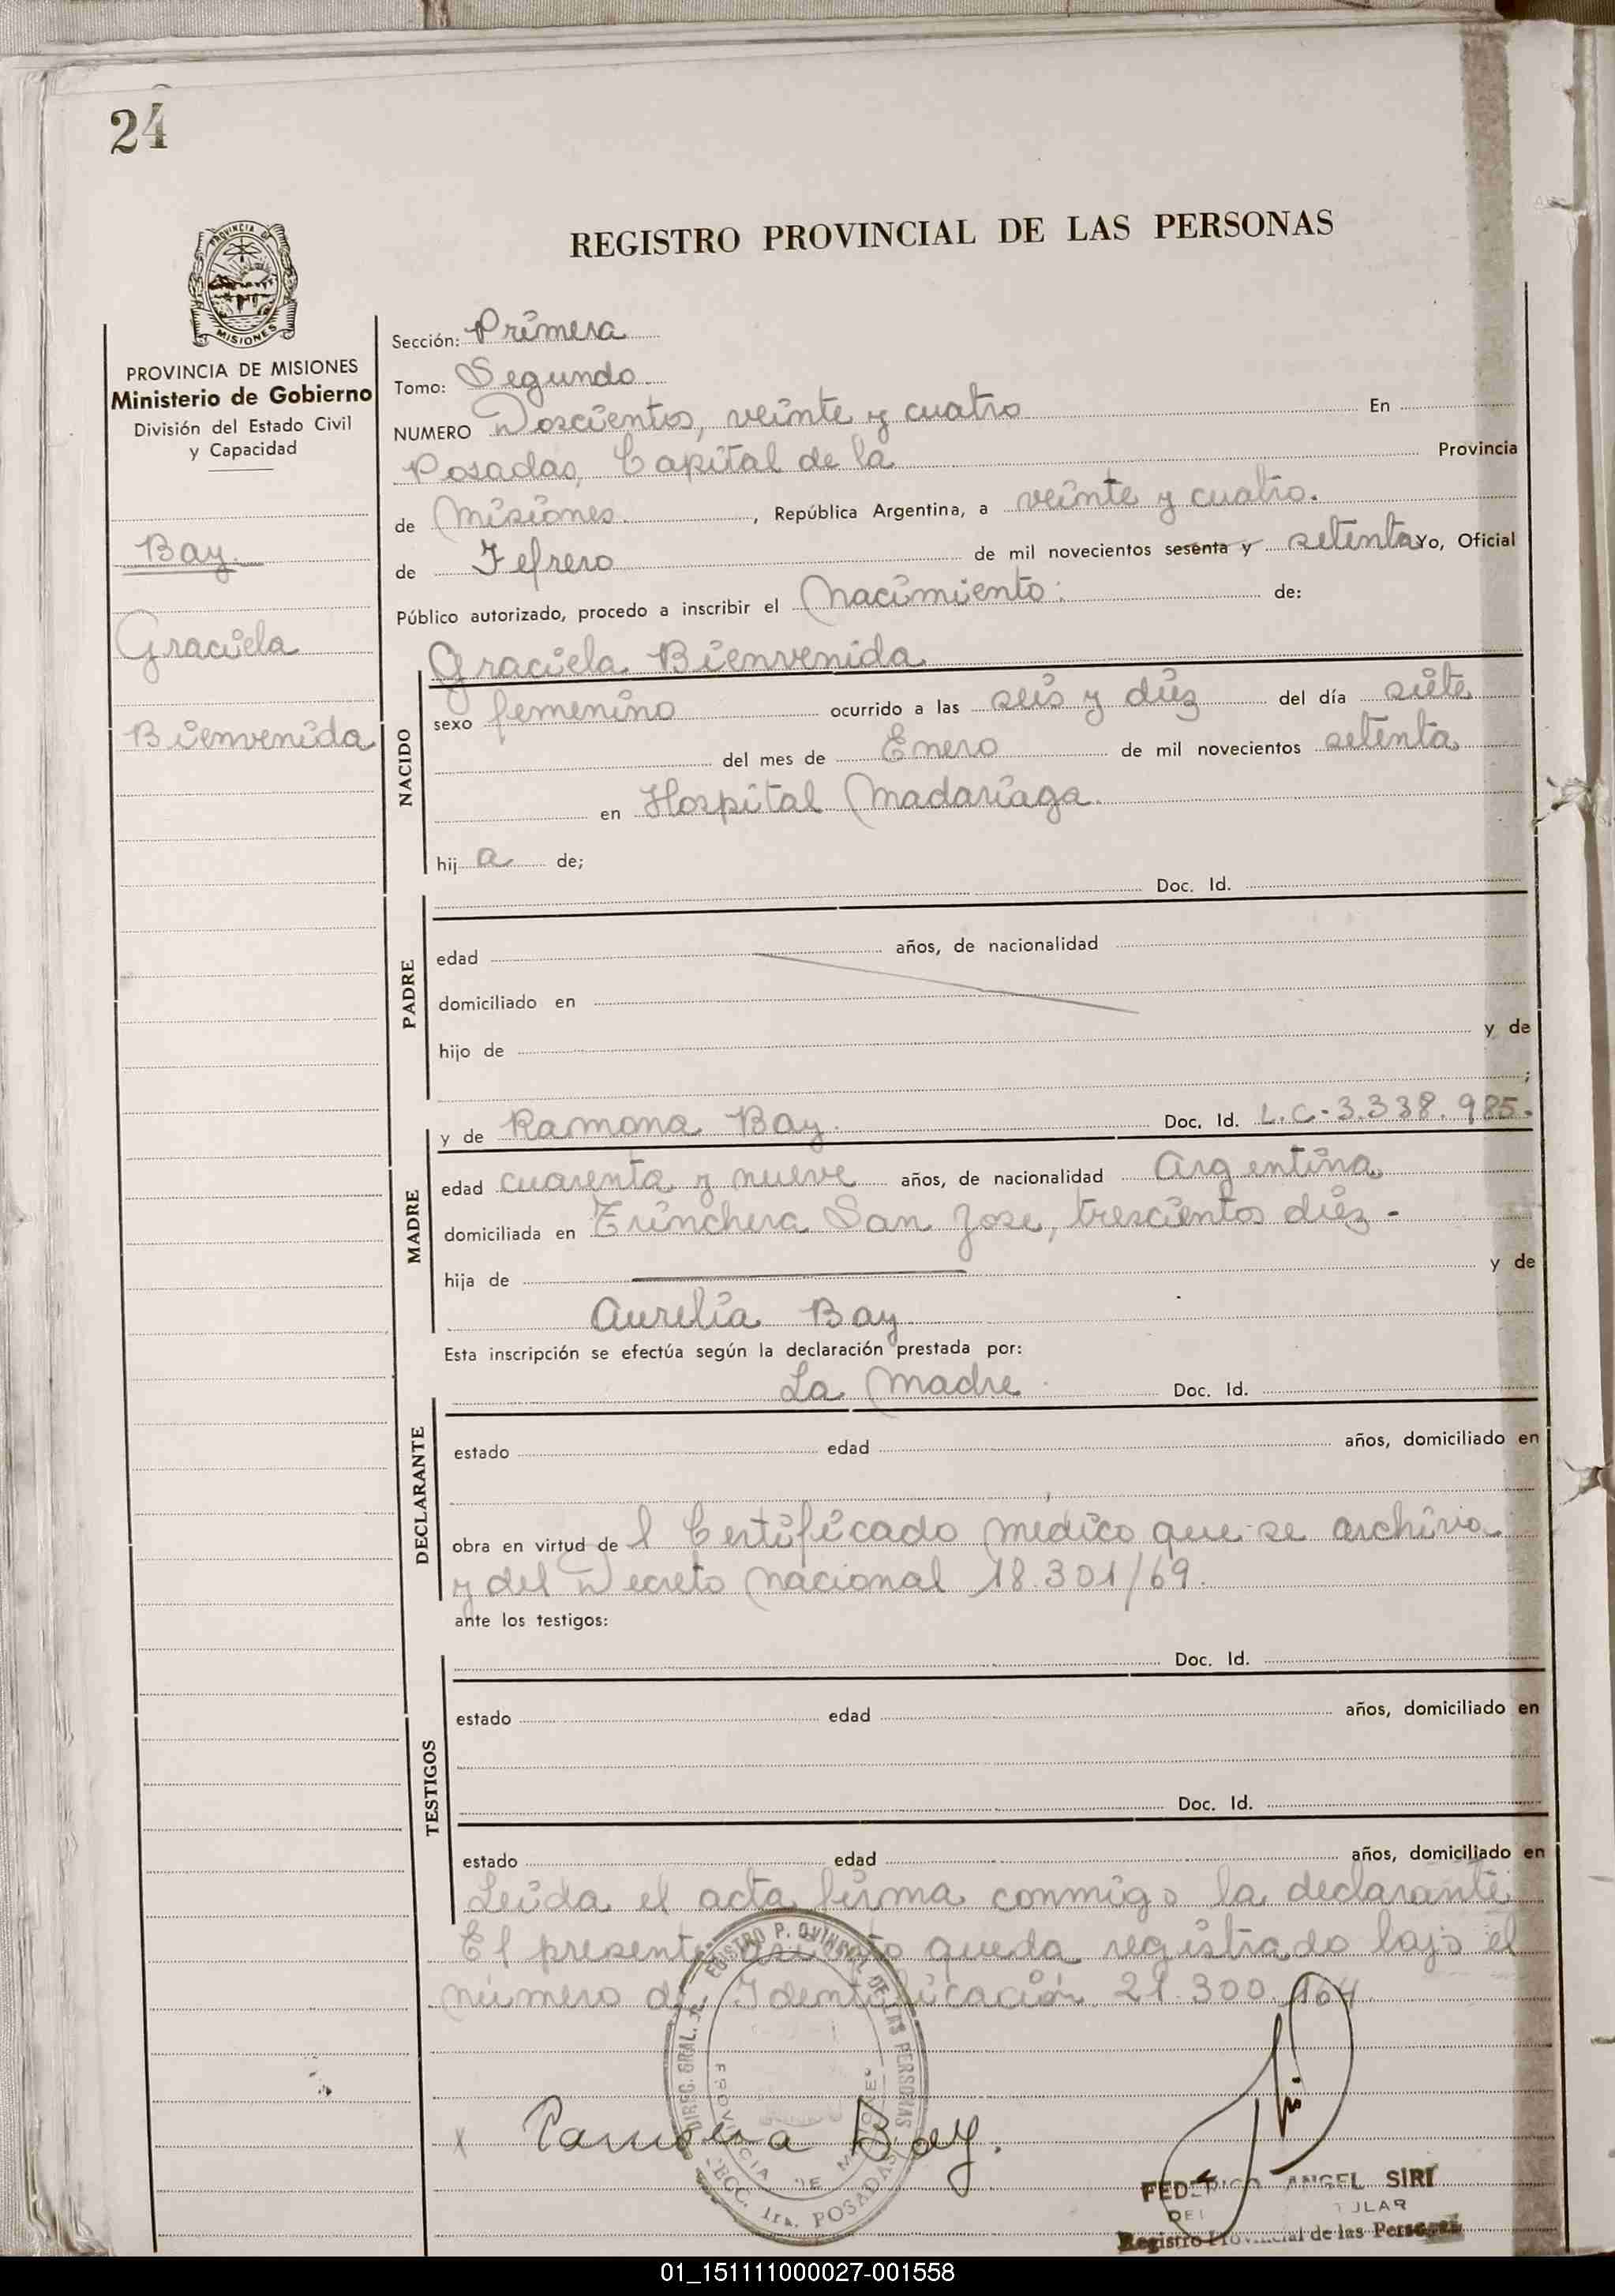 24
REGISTRO PROVINCIAL DE LAS PERSONAS
PROVINCIA DE
MISIONES
PROVINCIA DE MISIONES
Ministerio de Gobierno
División del Estado Civil
y Capacidad
Bay.
Graciela
Bienvenida
Sección: Primera
Tomo: Segundo.
NUMERO Doscientos, veinte y cuatro En
Posadas, Capital de la Provincia
de Misiones. , República Argentina, a veinte y cuatro.
de Febrero de mil novecientos sesenta y setenta Yo, Oficial
Público autorizado, procedo a inscribir el Nacimiento: de:
Graciela Bienvenida
NACIDO
sexo femenino ocurrido a las seis y diez del día siete
del mes de Enero de mil novecientos setenta
en Hospital Madariaga.
hij a de;
Doc. Id.
PADRE
edad años, de nacionalidad
domiciliado en
hijo de y de
;
y de Ramona Bay. Doc. Id. L.C.-3.338.985.
MADRE
edad cuarenta y nueve años, de nacionalidad Argentina
domiciliada en Trinchera San Jose, trescientos diez.-
hija de y de
Aurelia Bay.
Esta inscripción se efectúa según la declaración prestada por:
La Madre. Doc. Id.
DECLARANTE
estado edad años, domiciliado en
obra en virtud de l Certificado medico que se archiva
y del Decreto Nacional 18.301/69.
ante los testigos:
Doc. Id.
TESTIGOS
estado edad años, domiciliado en
Doc. Id.
estado edad años, domiciliado en
Leida el acta firma conmigo la declarante
El presente queda registrado bajo el
número de Identificación 21.300.164.
DIREC. GRAL. DE LAS PERSONAS
PROVINCIA DE MISIONES
SECC. 1ra. POSADAS
x Ramona Bay.
FEDERICO ANGEL SIRI
Registro Provincial de las Personas
01_151111000027-001558